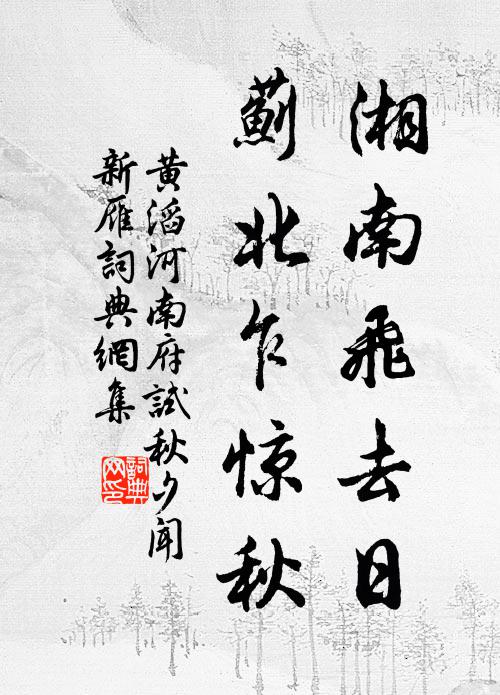 湘南飛去日
薊北乍惊秋
黄滔河南府試秋夕聞
新雁詞典網集
詞典
网印